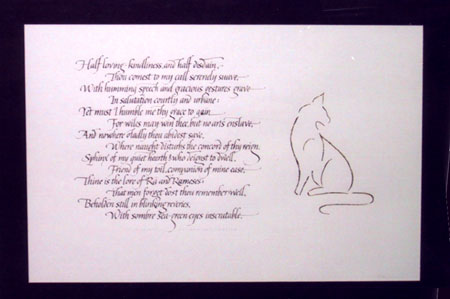 Half loving-kindliness, and half disdain,
Thou comest to my call serenely suave,
With humming speech and gracious gestures grave
In salutation courtly and urbane:
Yet must I humble me thy grace to gain
For wiles may win thee, but no arts enslave,
And nowhere gladly thou abidest save
Where naught disturbs the concord of thy reign.
Sphinx of my quiet hearth! who deignst to dwell,
Friend of my toil, companion of mine ease,
Thine is the lore of Ra and Rameses;
That men forget dost thou remember well,
Beholden still in blinking reveries,
With sombre sea-green eyes inscrutable.